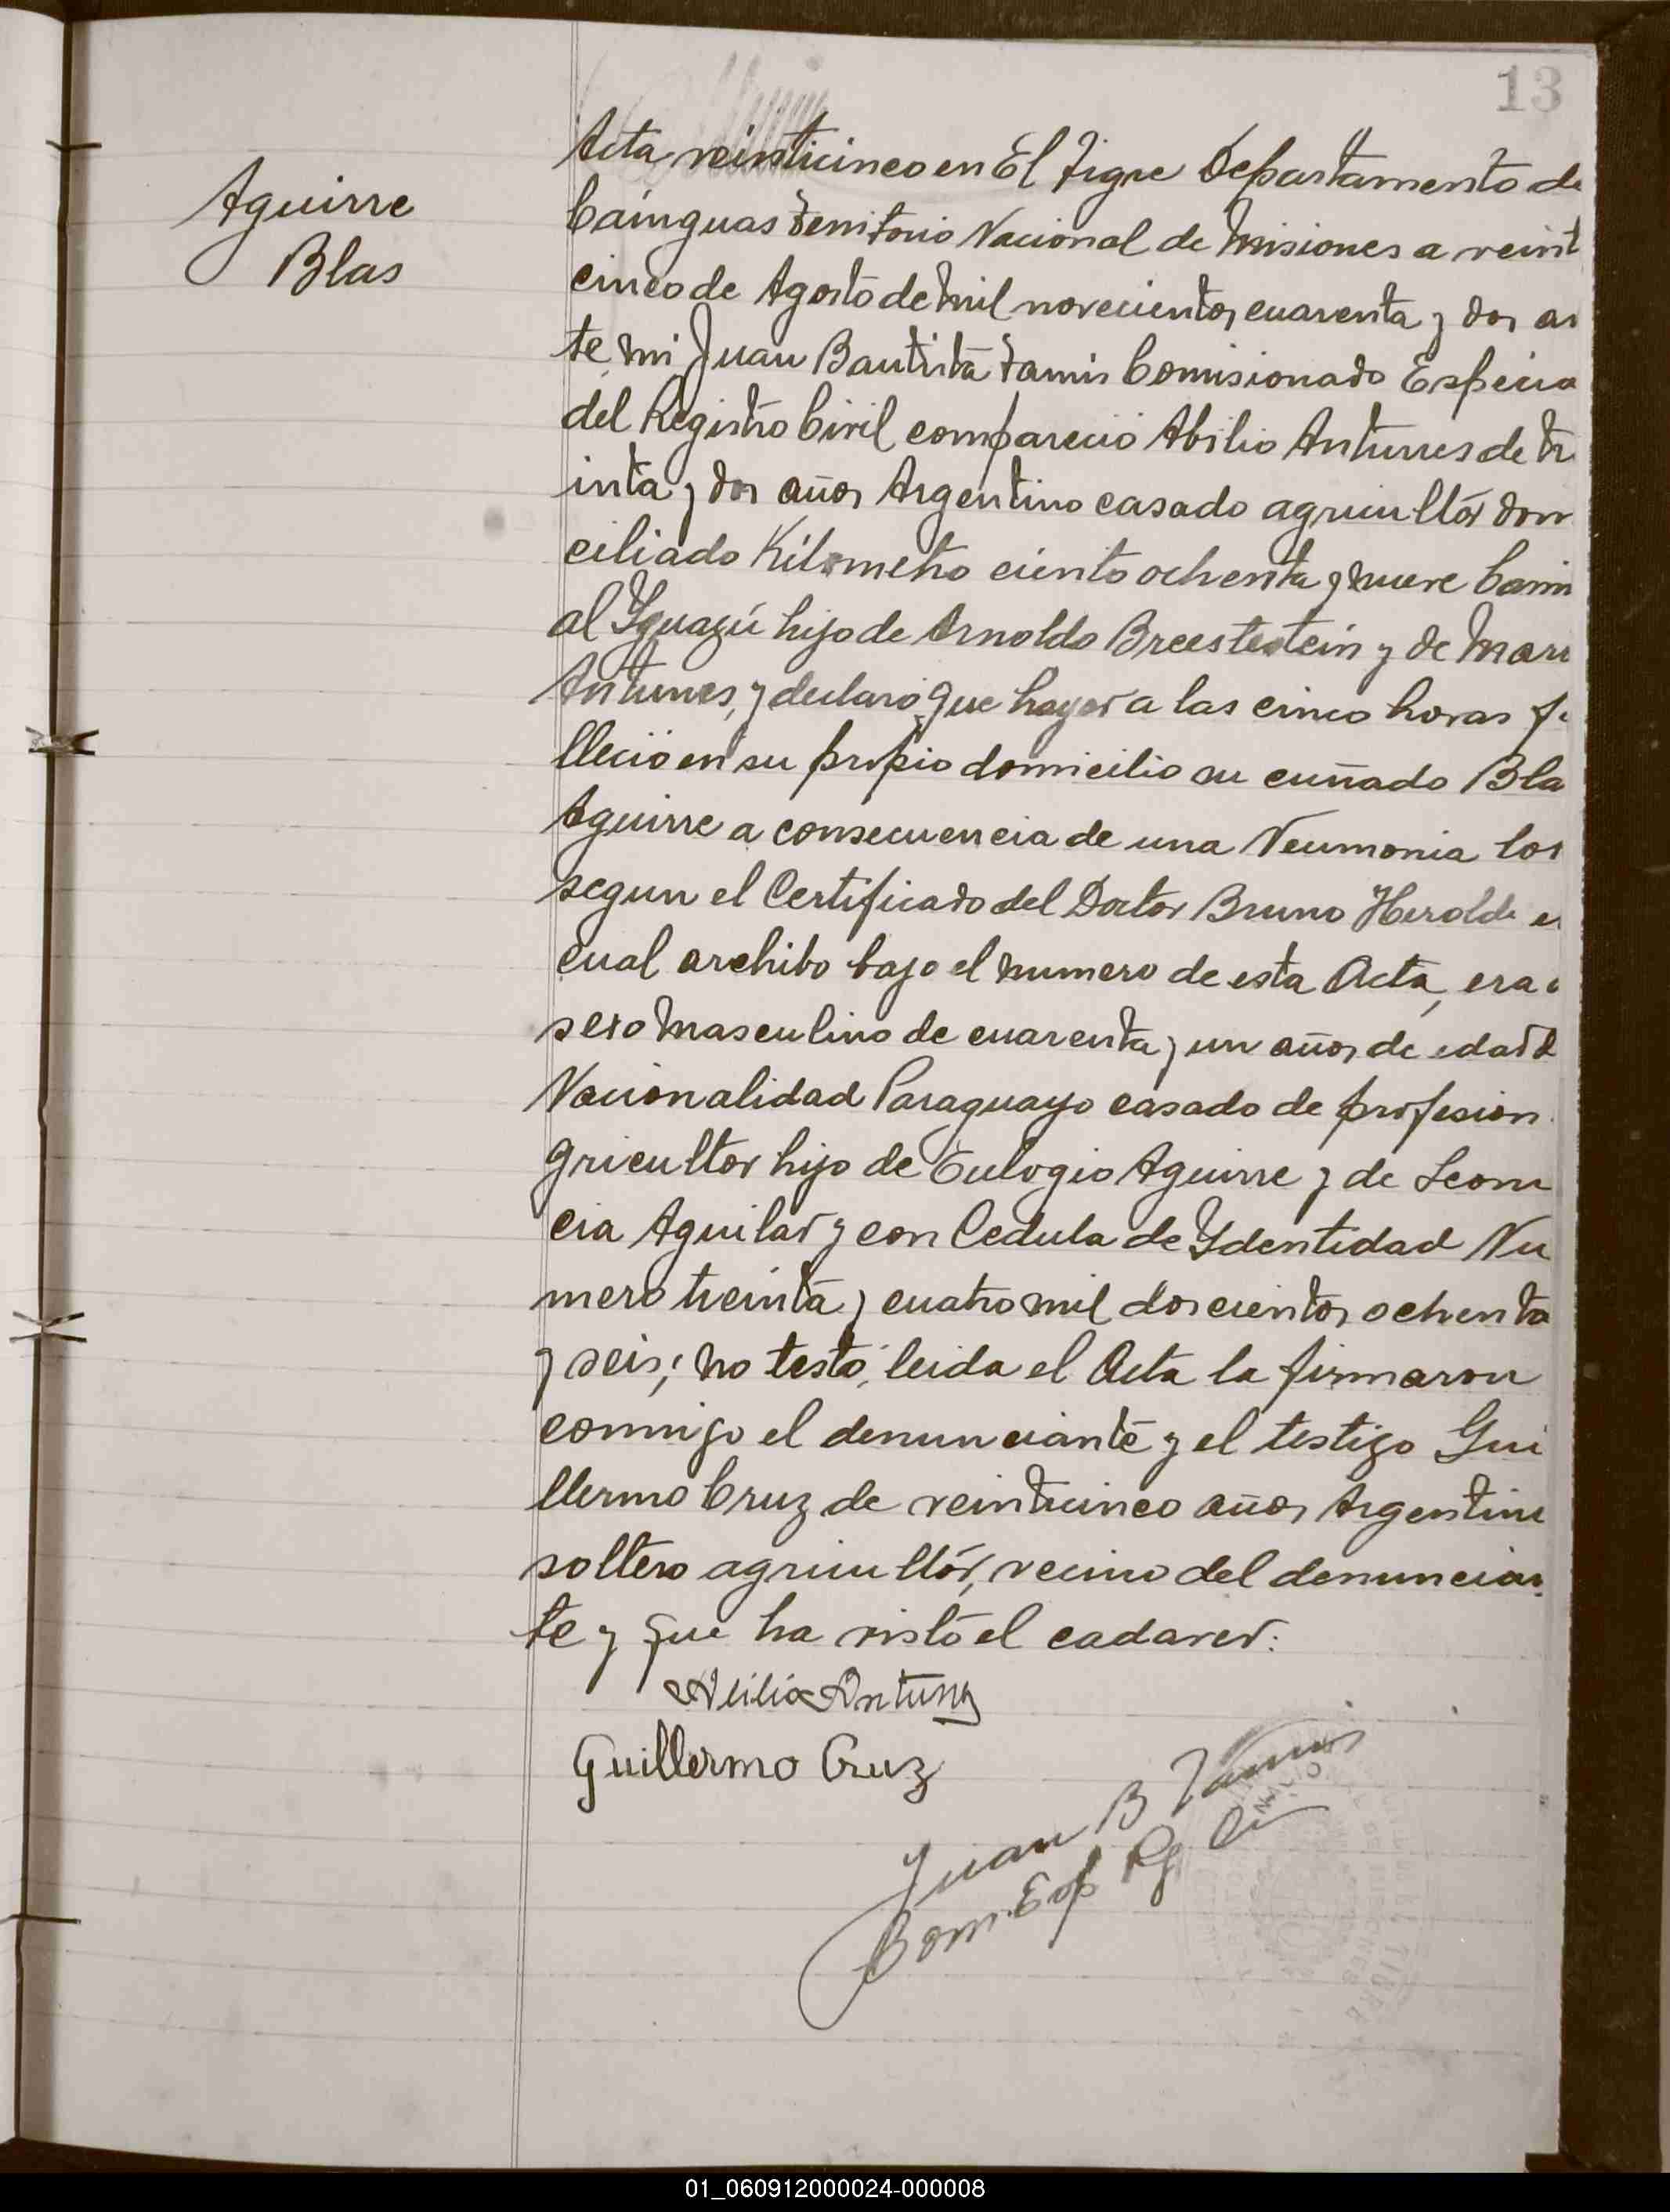 13
Aguirre
Blas
Acta veinticinco en El Tigre Departamento de
Cainguas Territorio Nacional de Misiones a veinti
cinco de Agosto de mil novecientos cuarenta y dos an
te mi Juan Bautista Tamis Comisionado Especia
del Registro Civil compareció Abilio Antunes de tr
inta y dos años Argentino casado agricultór dom
ciliado Kilometro ciento ochenta y nueve Camin
al Yguazú hijo de Arnoldo Breestestein y de Mari
Antunes, y declaró que hayer a las cinco horas fa
lleció en su propio domicilio su cuñado Bla
Aguirre a consecuencia de una Neumonia
segun el Certificado del Doctor Bruno Herolde e
cual archibo bajo el numero de esta Acta, era
sexo masculino de cuarenta y un años de edad d
Nacionalidad Paraguayo casado de profesion
gricultor hijo de Eulogio Aguirre y de Leon
cia Aguilar y con Cedula de Ydentidad Nu
mero treinta y cuatro mil doscientos ochenta
y seis; no testó, leida el Acta la firmaron
conmigo el denunciante y el testigo Gui
llermo Cruz de veinticinco años Argentino
soltero agricultór, vecino del denuncian
te y que ha visto el cadaver:
Antunes
Guillermo Cruz
Juan B Tamis
Com. Esp Rg Ci
01_060912000024-000008